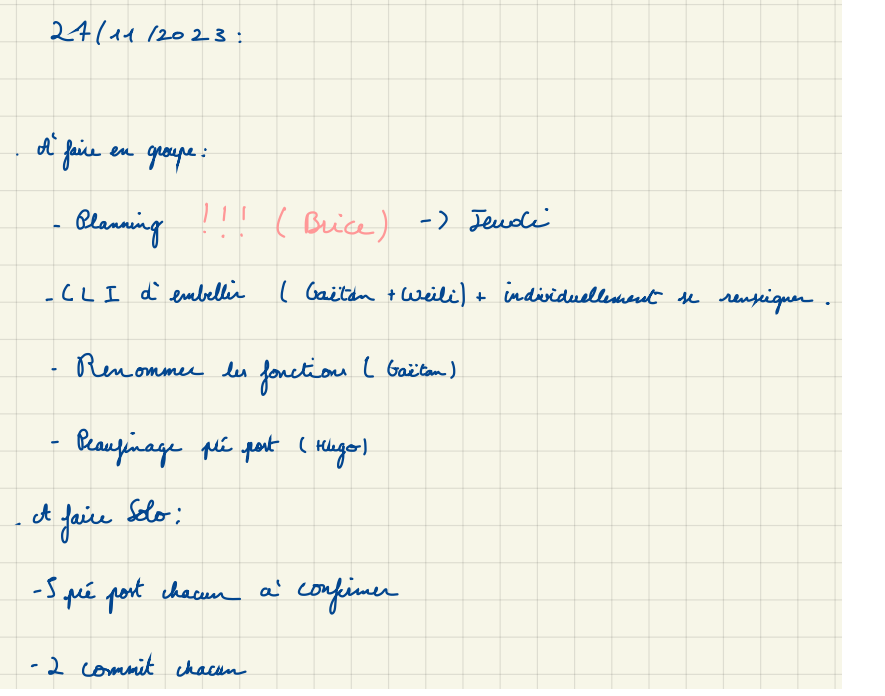 27/11/2023:
. A faire en groupe:
- Planning !!! (Brice) -> Jeudi
- CLI à embellir (Gaëtan + Weili) + individuellement se renseigner.
- Renommer les fonctions (Gaëtan)
- Peaufinage pré post (Hugo)
. A faire Solo:
- 5 pré post chacun à confirmer
- 2 commit chacun